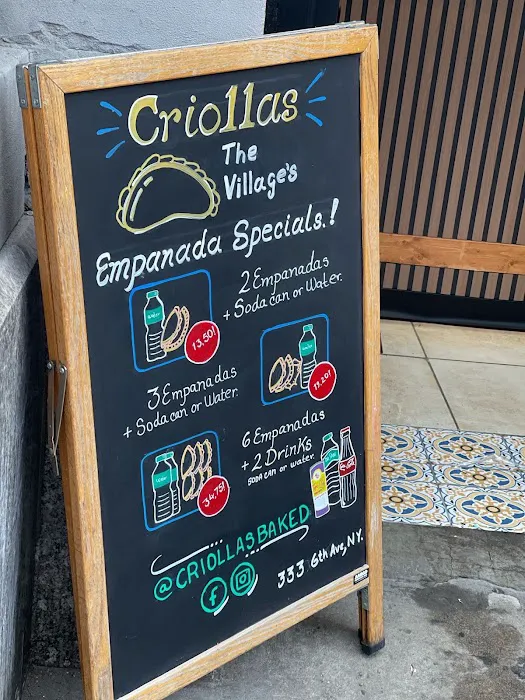 Criollas
The
Village's
Empanada Specials.!
2 Empanadas
+ Soda can or Water.
13,50!
3 Empanadas
+ Soda can or Water.
6 Empanadas
+ 2 Drinks
SODA CAN or water.
34,75!
@CRIOLLASBAKED
333 6th Ave, NY.